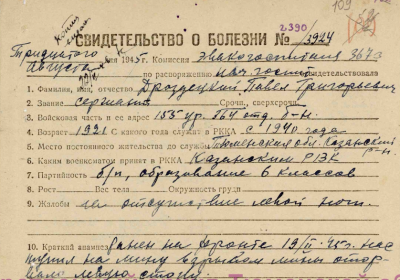 109
Копия
2390
СВИДЕТЕЛЬСТВО О БОЛЕЗНИ № /3924
Тридцатого
Августа 1945г. Комиссия эвакогоспиталя 3673
по распоряжению нач госп. свидетельствовала
1. Фамилия, имя, отчество Дроздецкий Павел Григорьевич
2. Звание сержант Срочн., сверхсрочн.
3. Войсковая часть и ее адрес 155 ур. 564 отд. б-н.
4. Возраст 1921 С какого года служит в РККА с 1940 года
5. Место постоянного жительства до службы Тюменская обл. Казанский р-н.
6. Каким военкоматом принят в РККА Казанским РВК
7. Партийность б/п, образование 6 классов
8. Рост Вес тела Окружность груди
9. Жалобы на отсутствие левой ноги.
10. Краткий анамнез Ранен на фронте 19/II-45г. нас
тупил на мину взрывом мины отор
вало левую стопу.